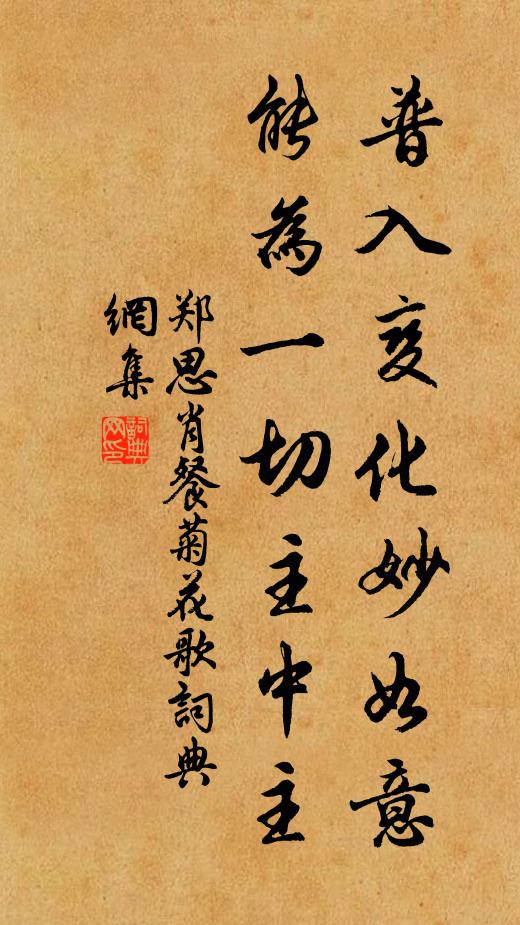 普入变化妙如意
能為一切主中主
郑思肖餐菊花歌詞典
網集
詞典
网印